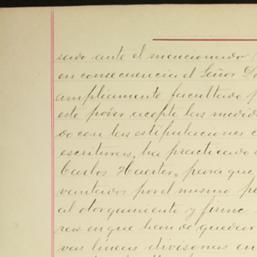 sado ante el mencionado
en consecuencia el Señor Do
ampliamente facultado p
este poder acepte las medid
do con las estipulaciones c
escritura, ha practicado
Carlos Huerter, para que
ventados por el mismo pe
al otorgamiento y firme
res en que han de quedar
vas líneas divisorias en